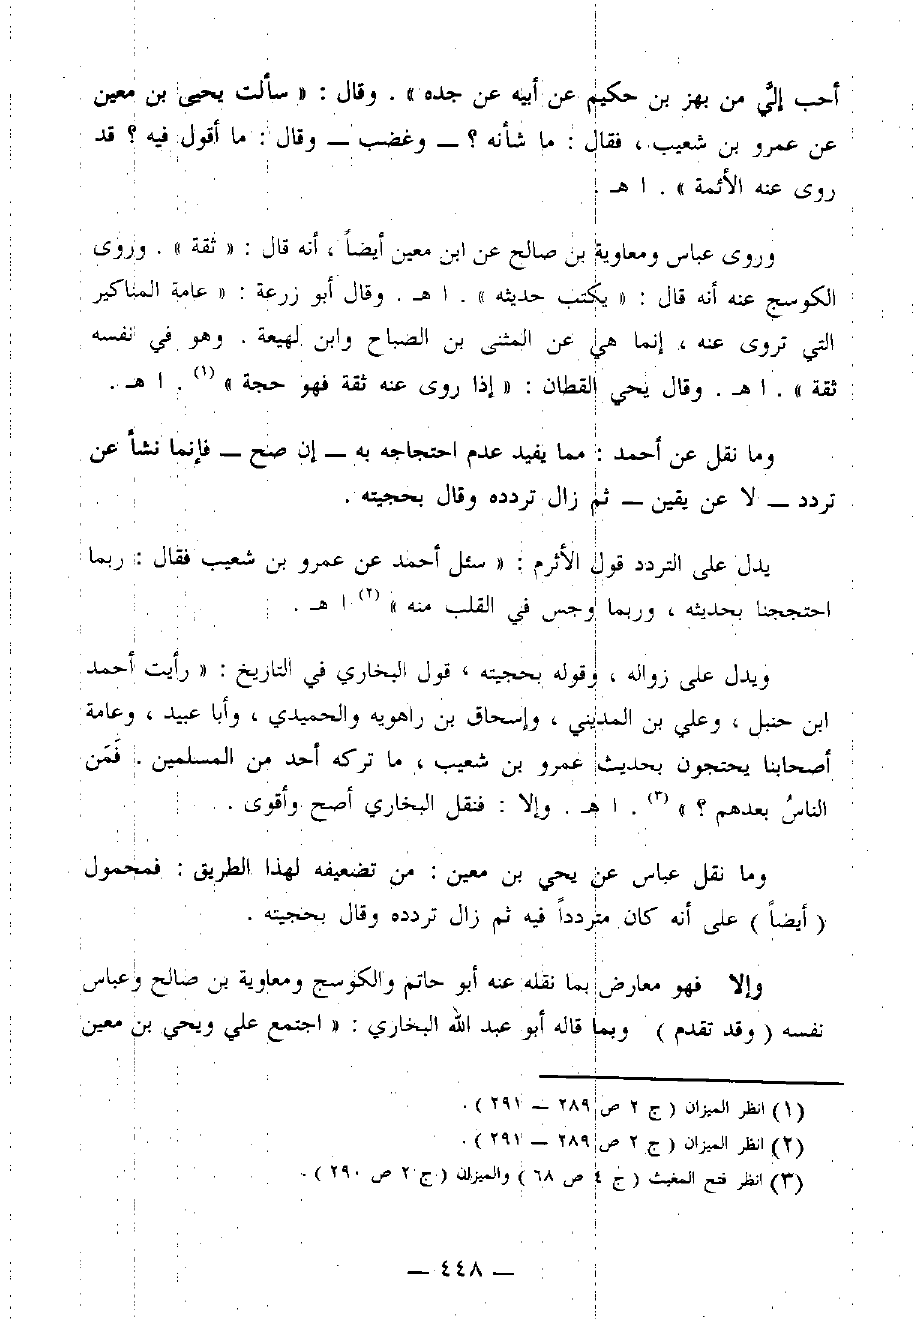 أحب إليَّ من بهز بن حكيم عن أبيه عن جده » . وقال : « سألت يحيى بن معين
عن عمرو بن شعيب ، فقال : ما شأنه ؟ ــ وغضب ــ وقال : ما أقول فيه ؟ قد
روى عنه الأئمة » . ا هـ .
وروى عباس ومعاوية بن صالح عن ابن معين أيضاً ، أنه قال : « ثقة » . وروى
الكوسج عنه أنه قال : « يكتب حديثه » . ا هـ . وقال أبو زرعة : « عامة المناكير
التي تروى عنه ، إنما هي عن المثنى بن الصباح وابن لهيعة . وهو في نفسه
ثقة » . ا هـ . وقال يحي القطان : « إذا روى عنه ثقة فهو حجة » (١) . ا هـ .
وما نقل عن أحمد : مما يفيد عدم احتجاجه به ــ إن صح ــ فإنما نشأ عن
تردد ــ لا عن يقين ــ ثم زال تردده وقال بحجيته .
يدل على التردد قول الأثرم : « سئل أحمد عن عمرو بن شعيب فقال : ربما
احتججنا بحديثه ، وربما وجس في القلب منه » (٢) ا هـ .
ويدل على زواله ، وقوله بحجيته ، قول البخاري في التاريخ : « رأيت أحمد
ابن حنبل ، وعلي بن المديني ، وإسحاق بن راهويه والحميدي ، وأبا عبيد ، وعامة
أصحابنا يحتجون بحديث عمرو بن شعيب ، ما تركه أحد من المسلمين . فَمَن
الناسُ بعدهم ؟ » (٣) . ا هـ . وإلا : فنقل البخاري أصح وأقوى .
وما نقل عباس عن يحي بن معين : من تضعيفه لهذا الطريق : فمحمول
( أيضاً ) على أنه كان متردداً فيه ثم زال تردده وقال بحجيته .
وإلا فهو معارض بما نقله عنه أبو حاتم والكوسج ومعاوية بن صالح وعباس
نفسه ( وقد تقدم ) وبما قاله أبو عبد الله البخاري : « اجتمع علي ويحي بن معين
(١) انظر الميزان ( ج ٢ ص ٢٨٩ ــ ٢٩١ ) .
(٢) انظر الميزان ( ج ٢ ص ٢٨٩ ــ ٢٩١ ) .
(٣) انظر فتح المغيث ( ج ٤ ص ٦٨ ) والميزان ( ج ٢ ص ٢٩٠ ) .
ــ ٤٤٨ ــ